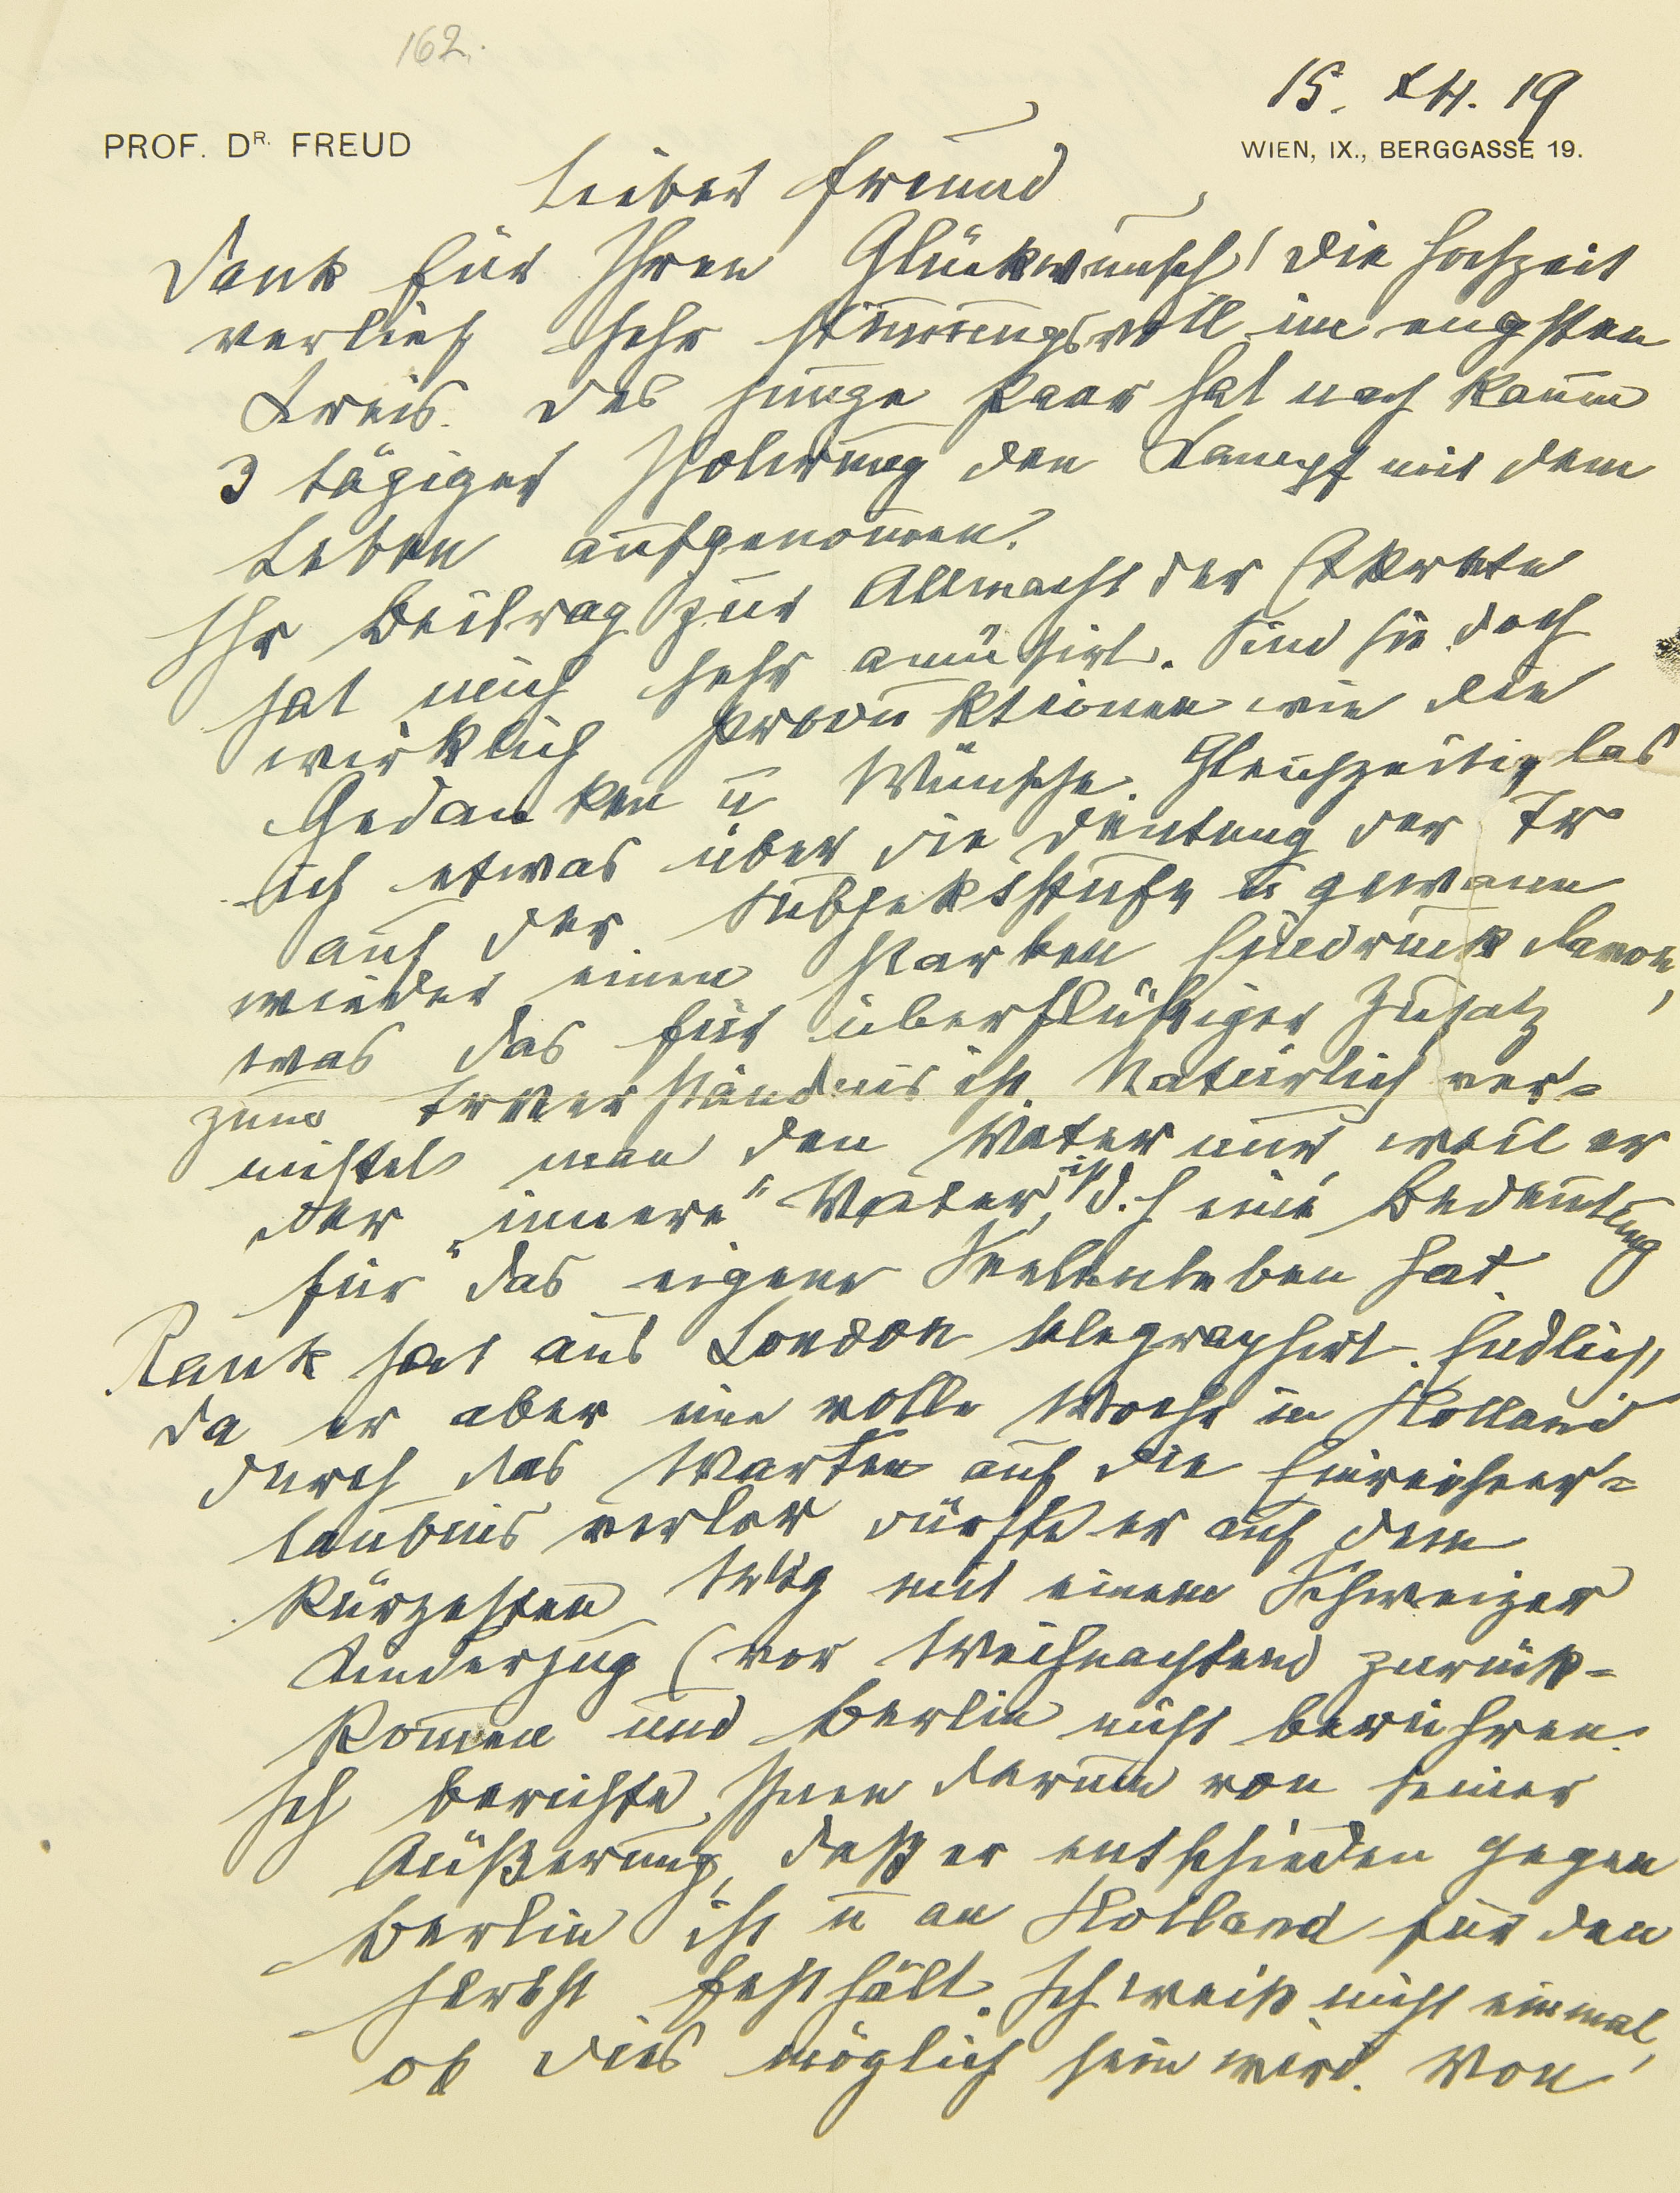 162.
15. XII. 19
PROF. DR. FREUD
WIEN, IX., BERGGASSE 19.
Lieber Freund
Dank für Ihren Glückwunsch! Die Hochzeit
verlief sehr stimmungsvoll im engsten
Kreis. Das junge Paar hat nach kaum
3 tägiger Schonung den Kampf mit dem
Leben aufgenommen.
Ihr Beitrag zur Allmacht der Exkrete
hat mich sehr amüsirt. Sind sie doch
wirklich Produktionen wie die
Gedanken u Wünsche. Gleichzeitig las
ich etwas über die Deutung der Tr
auf der Subjektstufe u gewann
wieder einen starken Eindruck davon,
was das für überflüßiger Zusatz
zum Trverständnis ist. Natürlich ver-
mittelt man den Vater nur, weil er
der „innere" Vater ist, d. h eine Bedeutung
für das eigene Seelenleben hat.
Rank hat aus London telegraphirt. Endlich,
da er aber eine volle Woche in Holland
durch das Warten auf die Einreiseer-
laubnis verlor dürfte er auf dem
kürzesten Weg mit einem Schweizer
Kinderzug (vor Weihnachten) zurück-
kommen und Berlin nicht berühren.
Ich berichte Ihnen darum von seiner
Äußerung, daß er entschieden gegen
Berlin ist u an Holland für den
Herbst festhält. Ich weiß nicht einmal,
ob dies möglich sein wird. Von